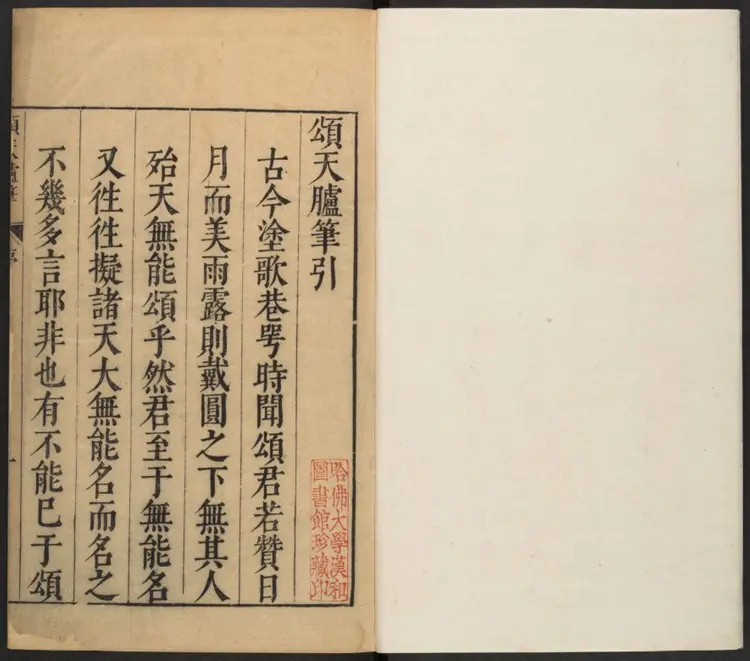 頌天臚筆引
古今塗歌巷咢時聞頌君若贊日
月而美雨露則戴圓之下無其人
殆天無能頌乎然君至于無能名
又徃徃擬諸天大無能名而名之
不幾多言耶非也有不能已于頌
哈佛大學漢和
圖書館珍藏印